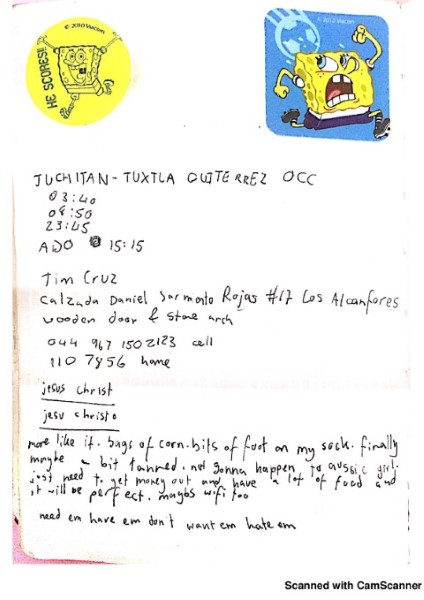 © 2010 Viacom
HE SCORES!!
© 2010 Viacom
JUCHITAN - TUXTLA GUITERREZ OCC
03:40
08:50
23:45
ADO 15:15
Tim Cruz
Calzada Daniel Sarmento Rojas #17 Los Alcanfores
wooden door & stone arch
044 967 1502123 cell
110 7856 home
jesus christ
jesu christo
more like it. bags of corn. bits of foot on my sock. finally
maybe a bit tanned. not gonna happen to aussie girl.
just need to get money out and have a lot of food and
it will be perfect. maybs wifi too
need em have em don't want em hate em
Scanned with CamScanner